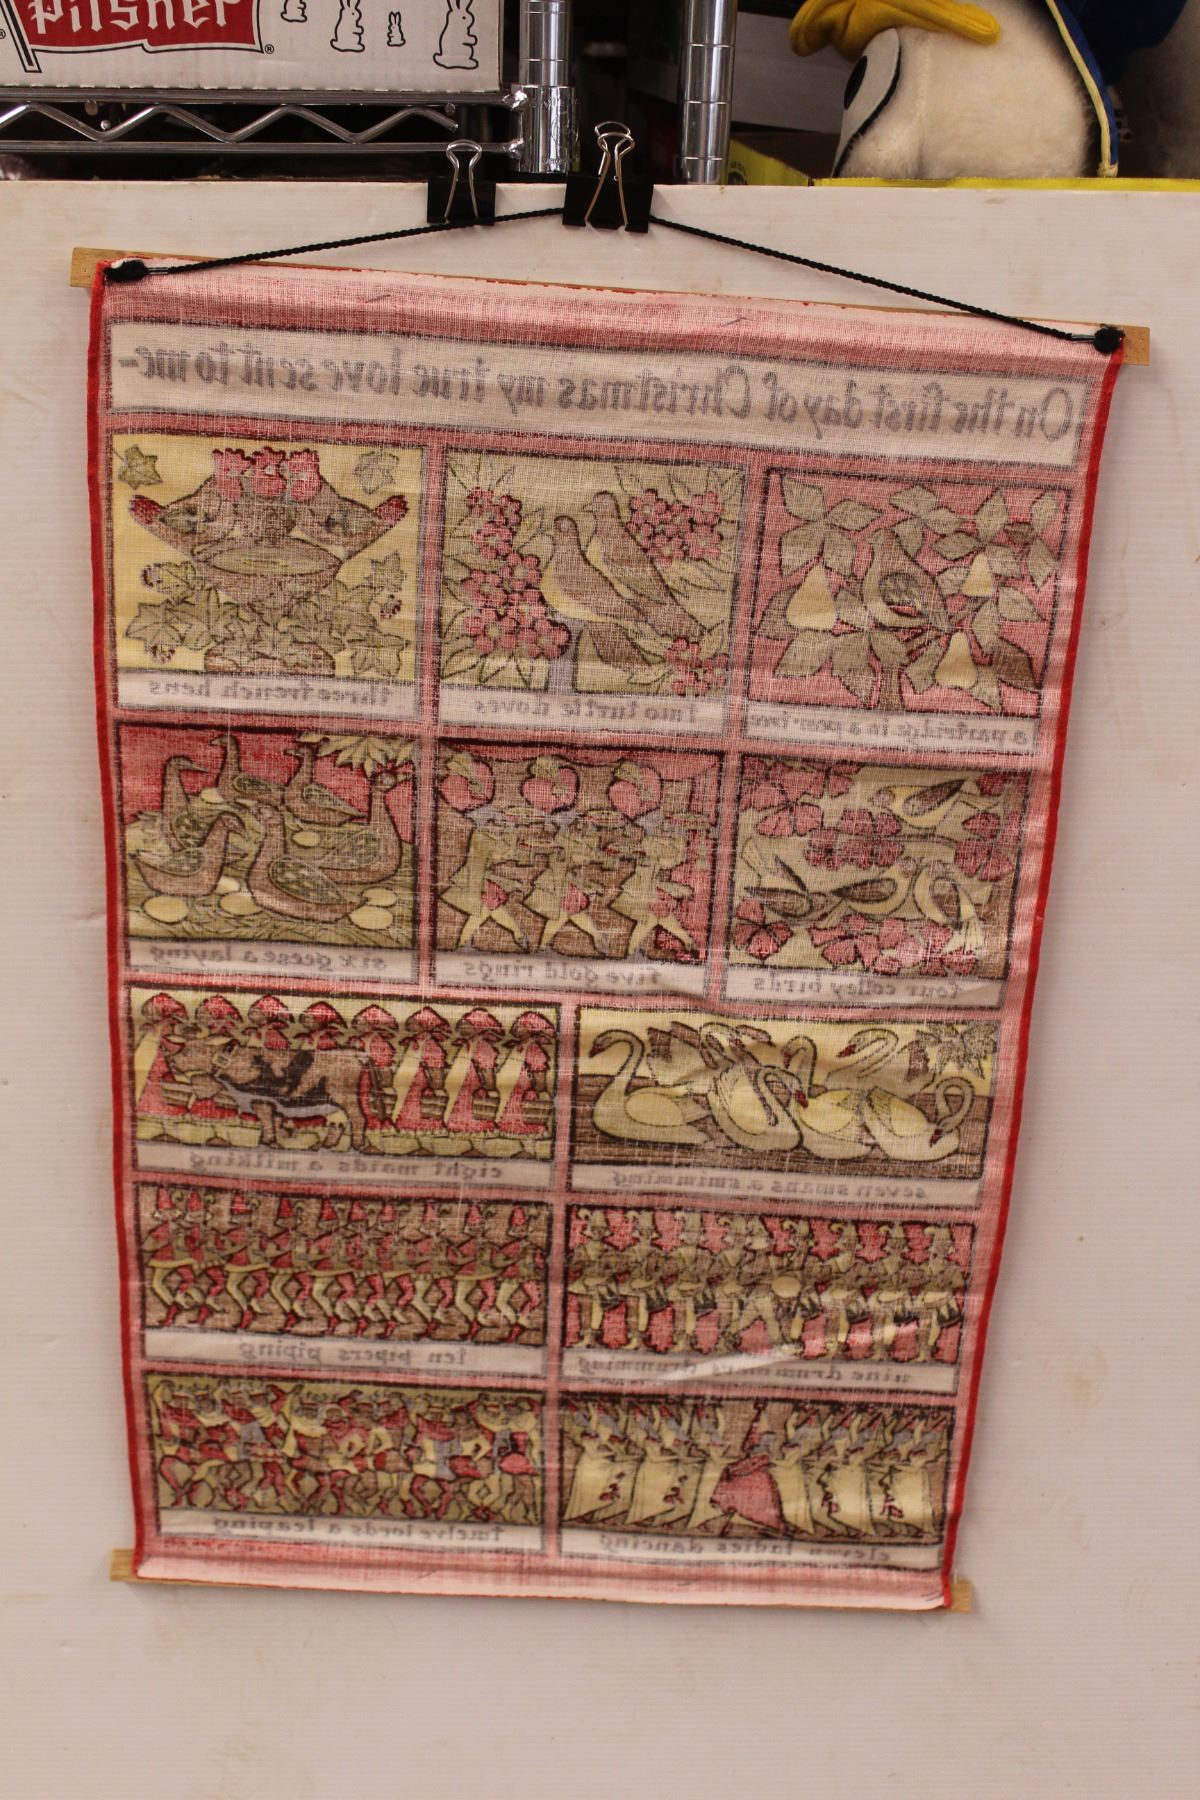 Pilsner
On the first day of Christmas my true love sent to me-
a partridge in a pear tree
two turtle doves
three french hens
four colley birds
five gold rings
six geese a laying
seven swans a swimming
eight maids a milking
nine drummers drumming
ten pipers piping
eleven ladies dancing
twelve lords a leaping